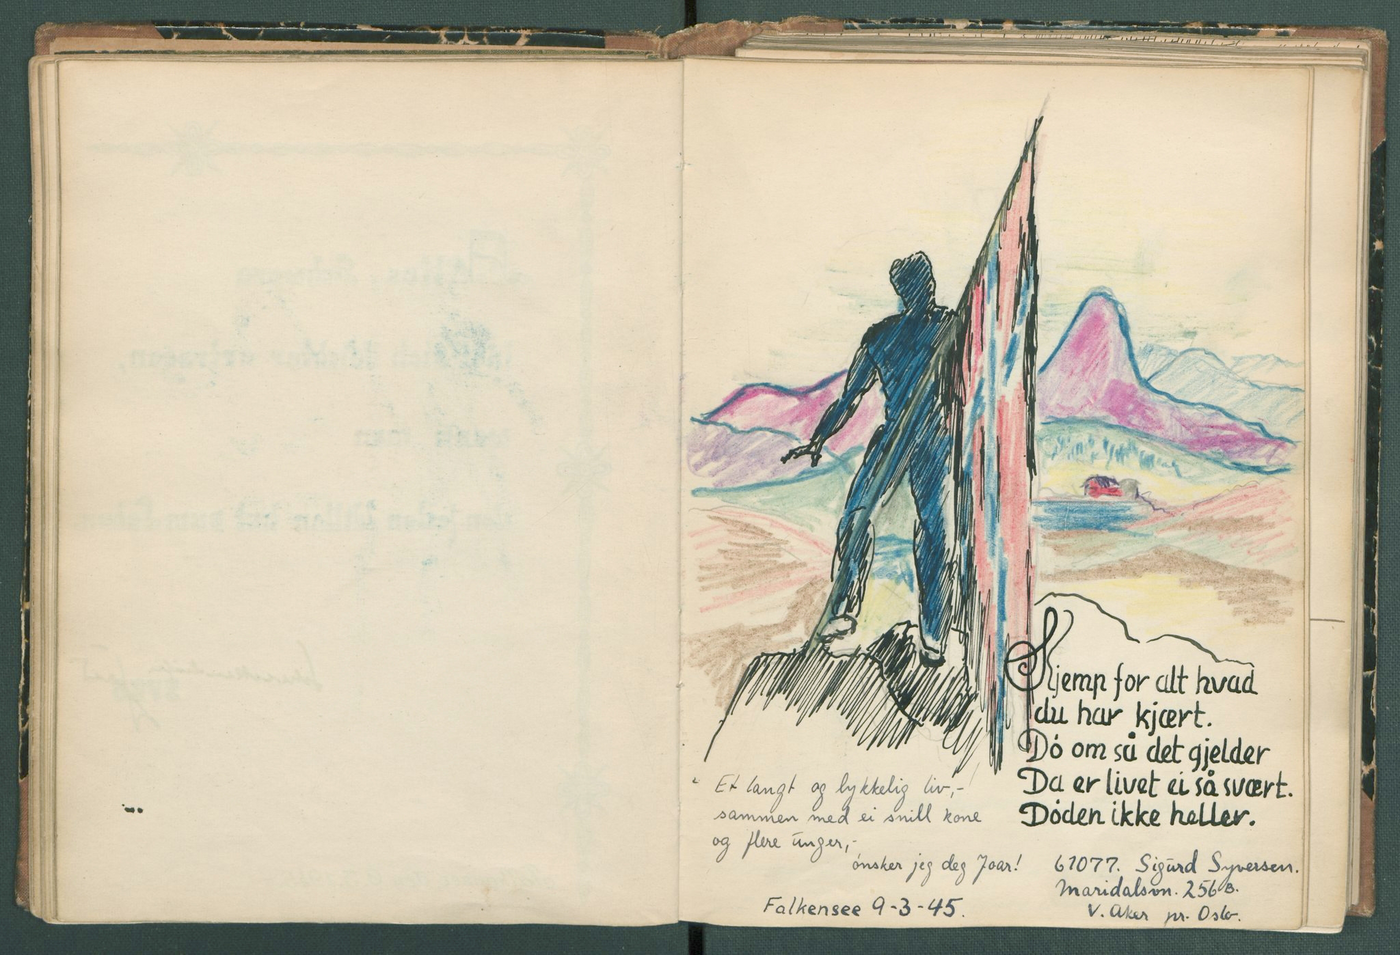 Kjemp for alt hvad
du har kjært.
Dö om så det gjelder
Da er livet ei så svært.
Döden ikke heller.
Et langt og lykkelig liv,-
sammen med ei snill kone
og flere unger,-
önsker jeg deg Joar!
Falkensee 9-3-45.
61077. Sigurd Syversen.
Maridalsvn. 256B.
V. Aker pr. Oslo.